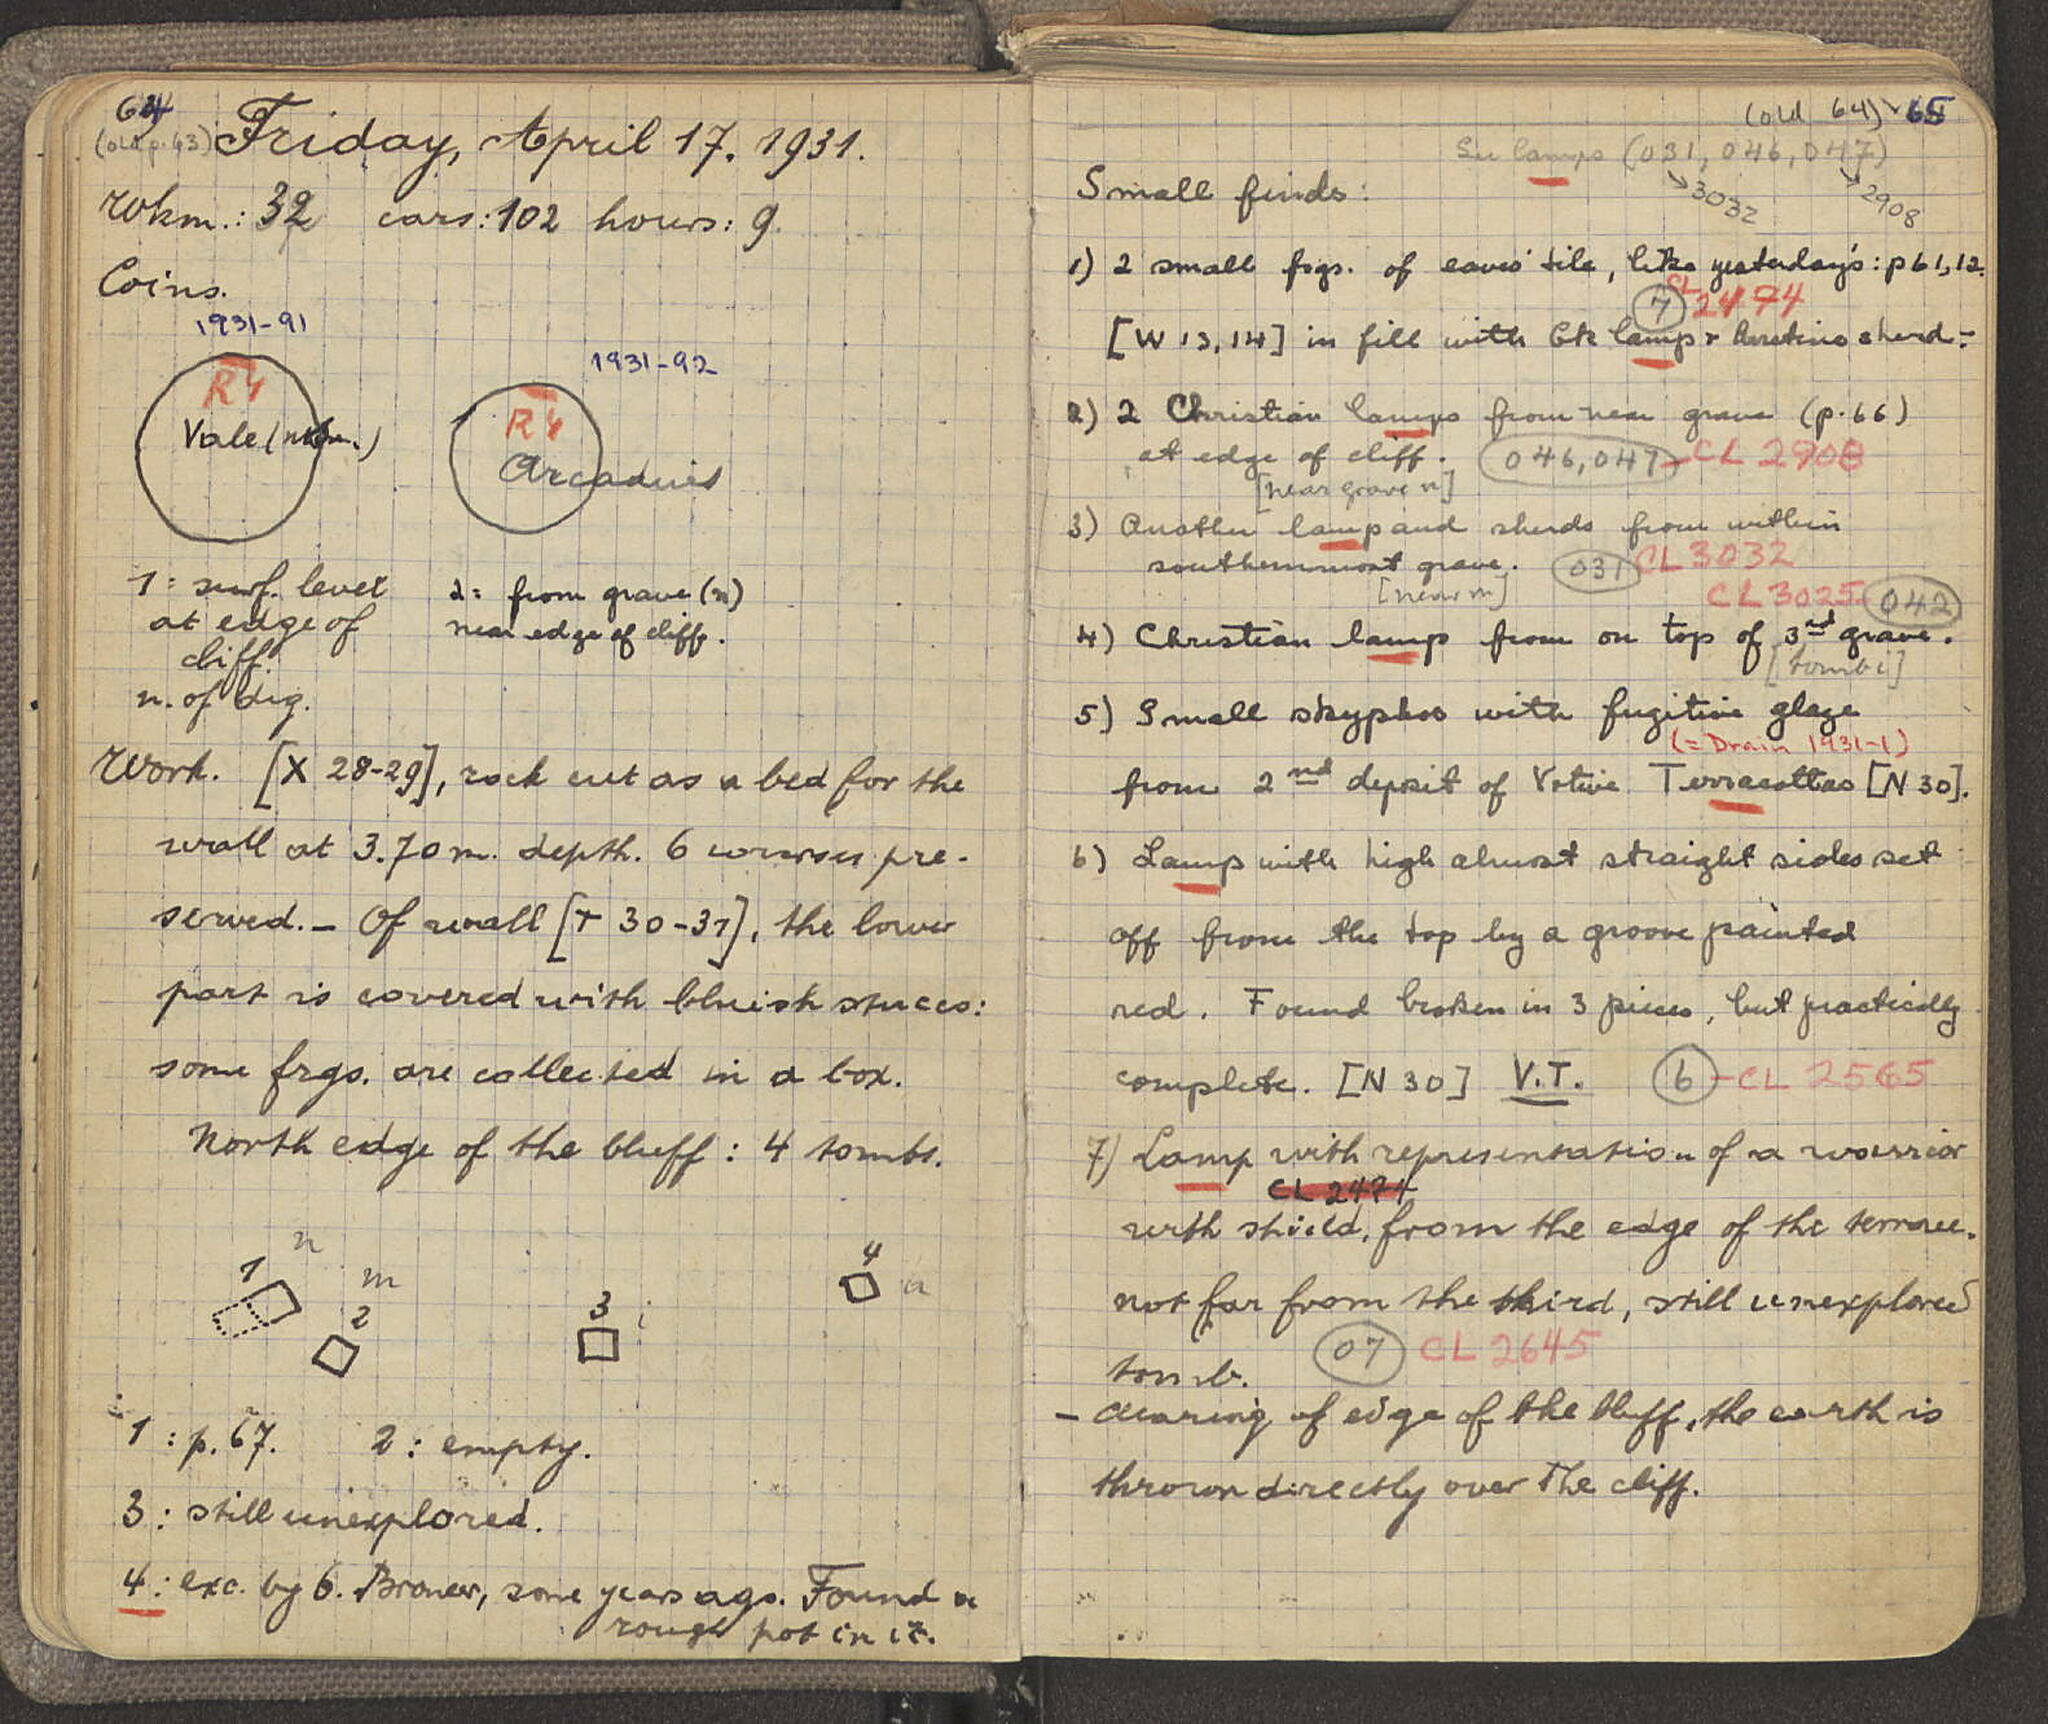 64
(old p. 63) Friday, April 17. 1931.
Wkm.: 32 cars: 102 hours: 9.
Coins.
1931-91
1931-92
R4
Vale
R4
Arcadius
1 = surf. level
at edge of
cliff.
n. of dig.
2 = from grave (n)
near edge of cliff.
Work. [X 28-29], rock cut as a bed for the
wall at 3.70 m. depth. 6 courses pre-
served. - Of wall [T 30-31], the lower
part is covered with bluish stucco:
some frgs. are collected in a box.
North edge of the bluff: 4 tombs.
n
1
m
2
3 i
4
a
1: p. 67. 2: empty.
3: still unexplored.
4: exc. by Broneer, some years ago. Found a
rough pot in it.
(old 64) 65
See lamps (031, 046, 047)
3032
2908
Small finds:
1) 2 small frgs. of eaves' tile, like yesterday's: p 61, 12.
7 CL 2474
[W 13, 14] in fill with Gk lamp & Arretine sherd -
2) 2 Christian lamps from near grave (p. 66)
at edge of cliff. 046, 047 - CL 2908
[near grave n]
3) Another lamp and sherds from within
southernmost grave. 031 CL 3032
[near m]
CL 3025 042
4) Christian lamp from on top of 3rd grave.
[tomb i]
5) Small skyphos with fugitive glaze
(= Drain 1931-1)
from 2nd deposit of Votive Terracottas [N 30].
6) Lamp with high almost straight sides set
off from the top by a groove painted
red. Found broken in 3 pieces, but practically
complete. [N 30] V.T. 6 - CL 2565
7) Lamp with representation of a warrior
CL 2474
with shield, from the edge of the terrace.
not far from the third, still unexplored
tomb. 07 CL 2645
- Clearing of edge of the bluff, the earth is
thrown directly over the cliff.